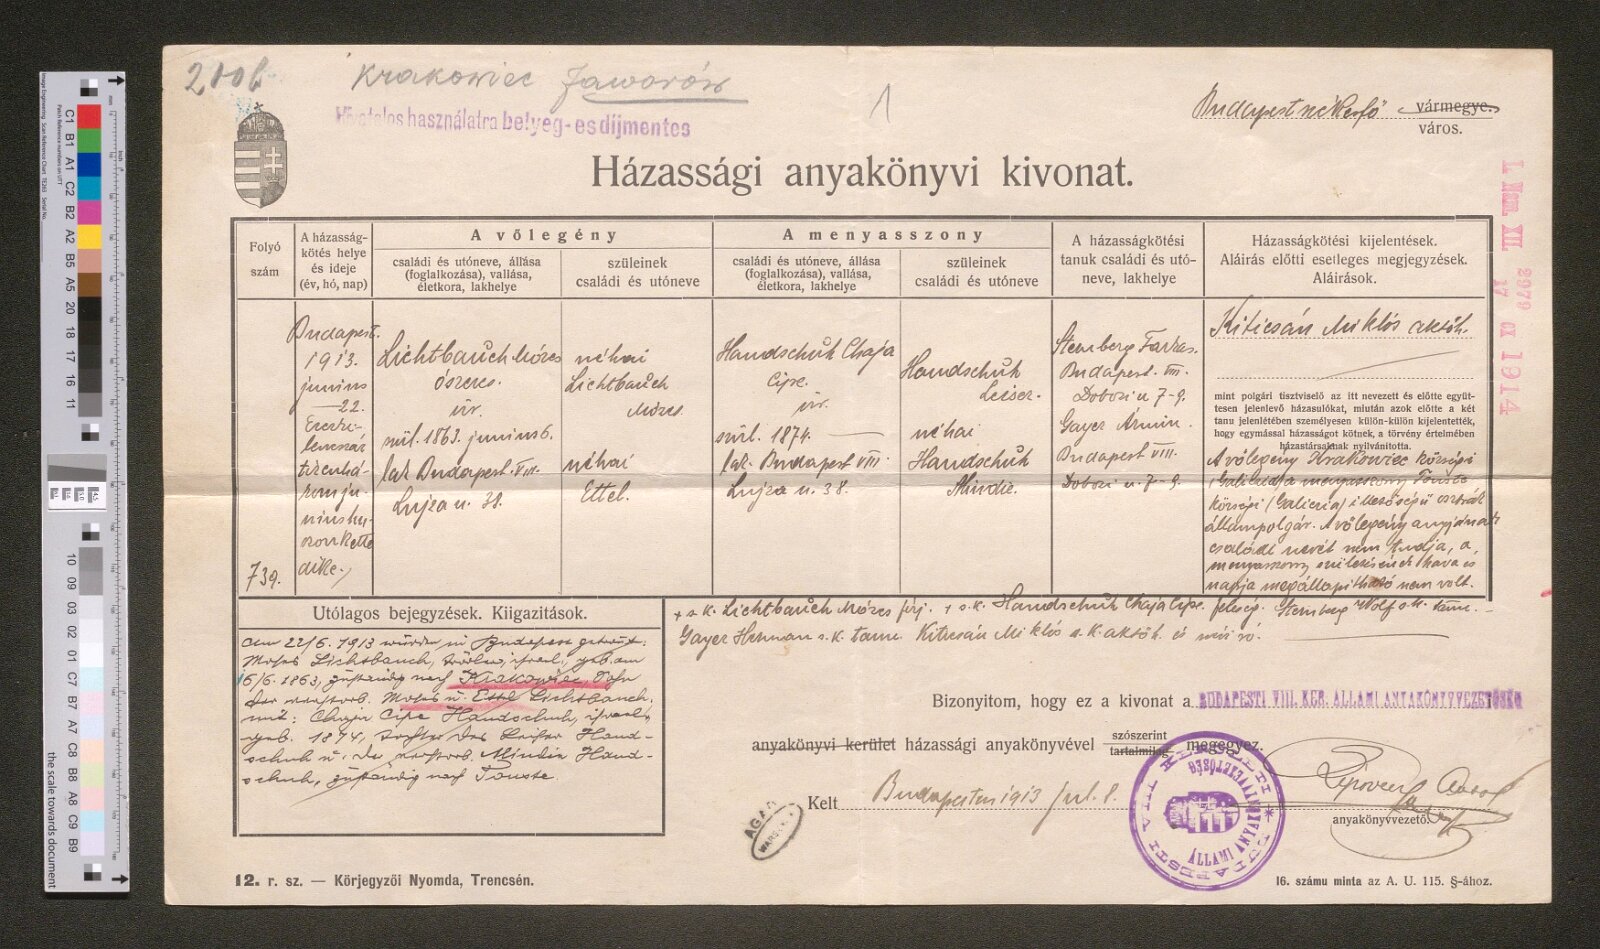 Krakowiec Jaworów
1
Hivatalos használatra belyeg- es díjmentes
Budapest székesfő vármegye.
város.
Házassági anyakönyvi kivonat.
1914
Folyó
szám
A házasság-
kötés helye
és ideje
(év, hó, nap)
A vőlegény
családi és utóneve, állása
(foglalkozása), vallása,
életkora, lakhelye
szüleinek
családi és utóneve
A menyasszony
családi és utóneve, állása
(foglalkozása), vallása,
életkora, lakhelye
szüleinek
családi és utóneve
A házasságkötési
tanuk családi és utó-
neve, lakhelye
Házasságkötési kijelentések.
Aláírás előtti esetleges megjegyzések.
Aláirások.
739.
Budapest.
1913.
junius
22.
Ezerki-
lencszáz
tizenhá-
rom ju-
nius hu-
szonkette
dike.
Lichtbauch Mózes
ószeres.
izr.
szül. 1863. junius 6.
lak. Budapest VIII.
Lujza u. 38.
néhai
Lichtbauch
Mózes
néhai
Ettel.
Handschuh Chaja
Cipe.
izr.
szül. 1874.
lak. Budapest VIII.
Lujza u. 38.
Handschuh
Leiser.
néhai
Handschuh
Mindie.
Sternberg Farkas.
Budapest. VIII.
Dobozi u 7-9.
Gayer Ármin.
Budapest VIII.
Dobozi u. 7-9.
Kiticsán Miklós aktőh.
mint polgári tisztviselő az itt nevezett és előtte együt-
tesen jelenlevő házasulókat, miután azok előtte a két
tanu jelenlétében személyesen külön-külön kijelentették,
hogy egymással házasságot kötnek, a törvény értelmében
házastársaknak nyilvánitotta.
A vőlegény Krakowiec községi
(Galicia) a menyasszony Touste
községi (Galicia) illetőségű osztrák
állampolgár. A vőlegény anyjának
családi nevét nem tudja, a
menyasszony születésének hava és
napja megállapitható nem volt.
s. k. Lichtbauch Mózes férj. s. k. Handschuh Chaja Cipe feleség. Sternberg Wolf s. k. tanu.
Gayer Herman s. k. tanu. Kiticsán Miklós s. k. aktőh.
Utólagos bejegyzések. Kiigazitások.
Am 22/6. 1913 wurden in Budapest getraut:
Moses Lichtbauch, Trödler, israel., geb. am
6/6. 1863, zuständig nach Krakowiec, Sohn
der verstorb. Moses u. Ettel Lichtbauch
mit: Chaja Cipe Handschuh, israel.,
geb. 1874, Tochter des Leiser Hand-
schuh u. der verstorb. Mindie Hand-
schuh, zuständig nach Touste.
Bizonyitom, hogy ez a kivonat a BUDAPESTI VIII. KER. ÁLLAMI ANYAKÖNYVVEZETŐSÉG
anyakönyvi kerület házassági anyakönyvével szószerint
tartalmilag megegyez.
Kelt Budapesten 1913 jul. 8.
anyakönyvvezető.
AGAD
12. r. sz. — Körjegyzői Nyomda, Trencsén.
16. számu minta az A. U. 115. §-ához.